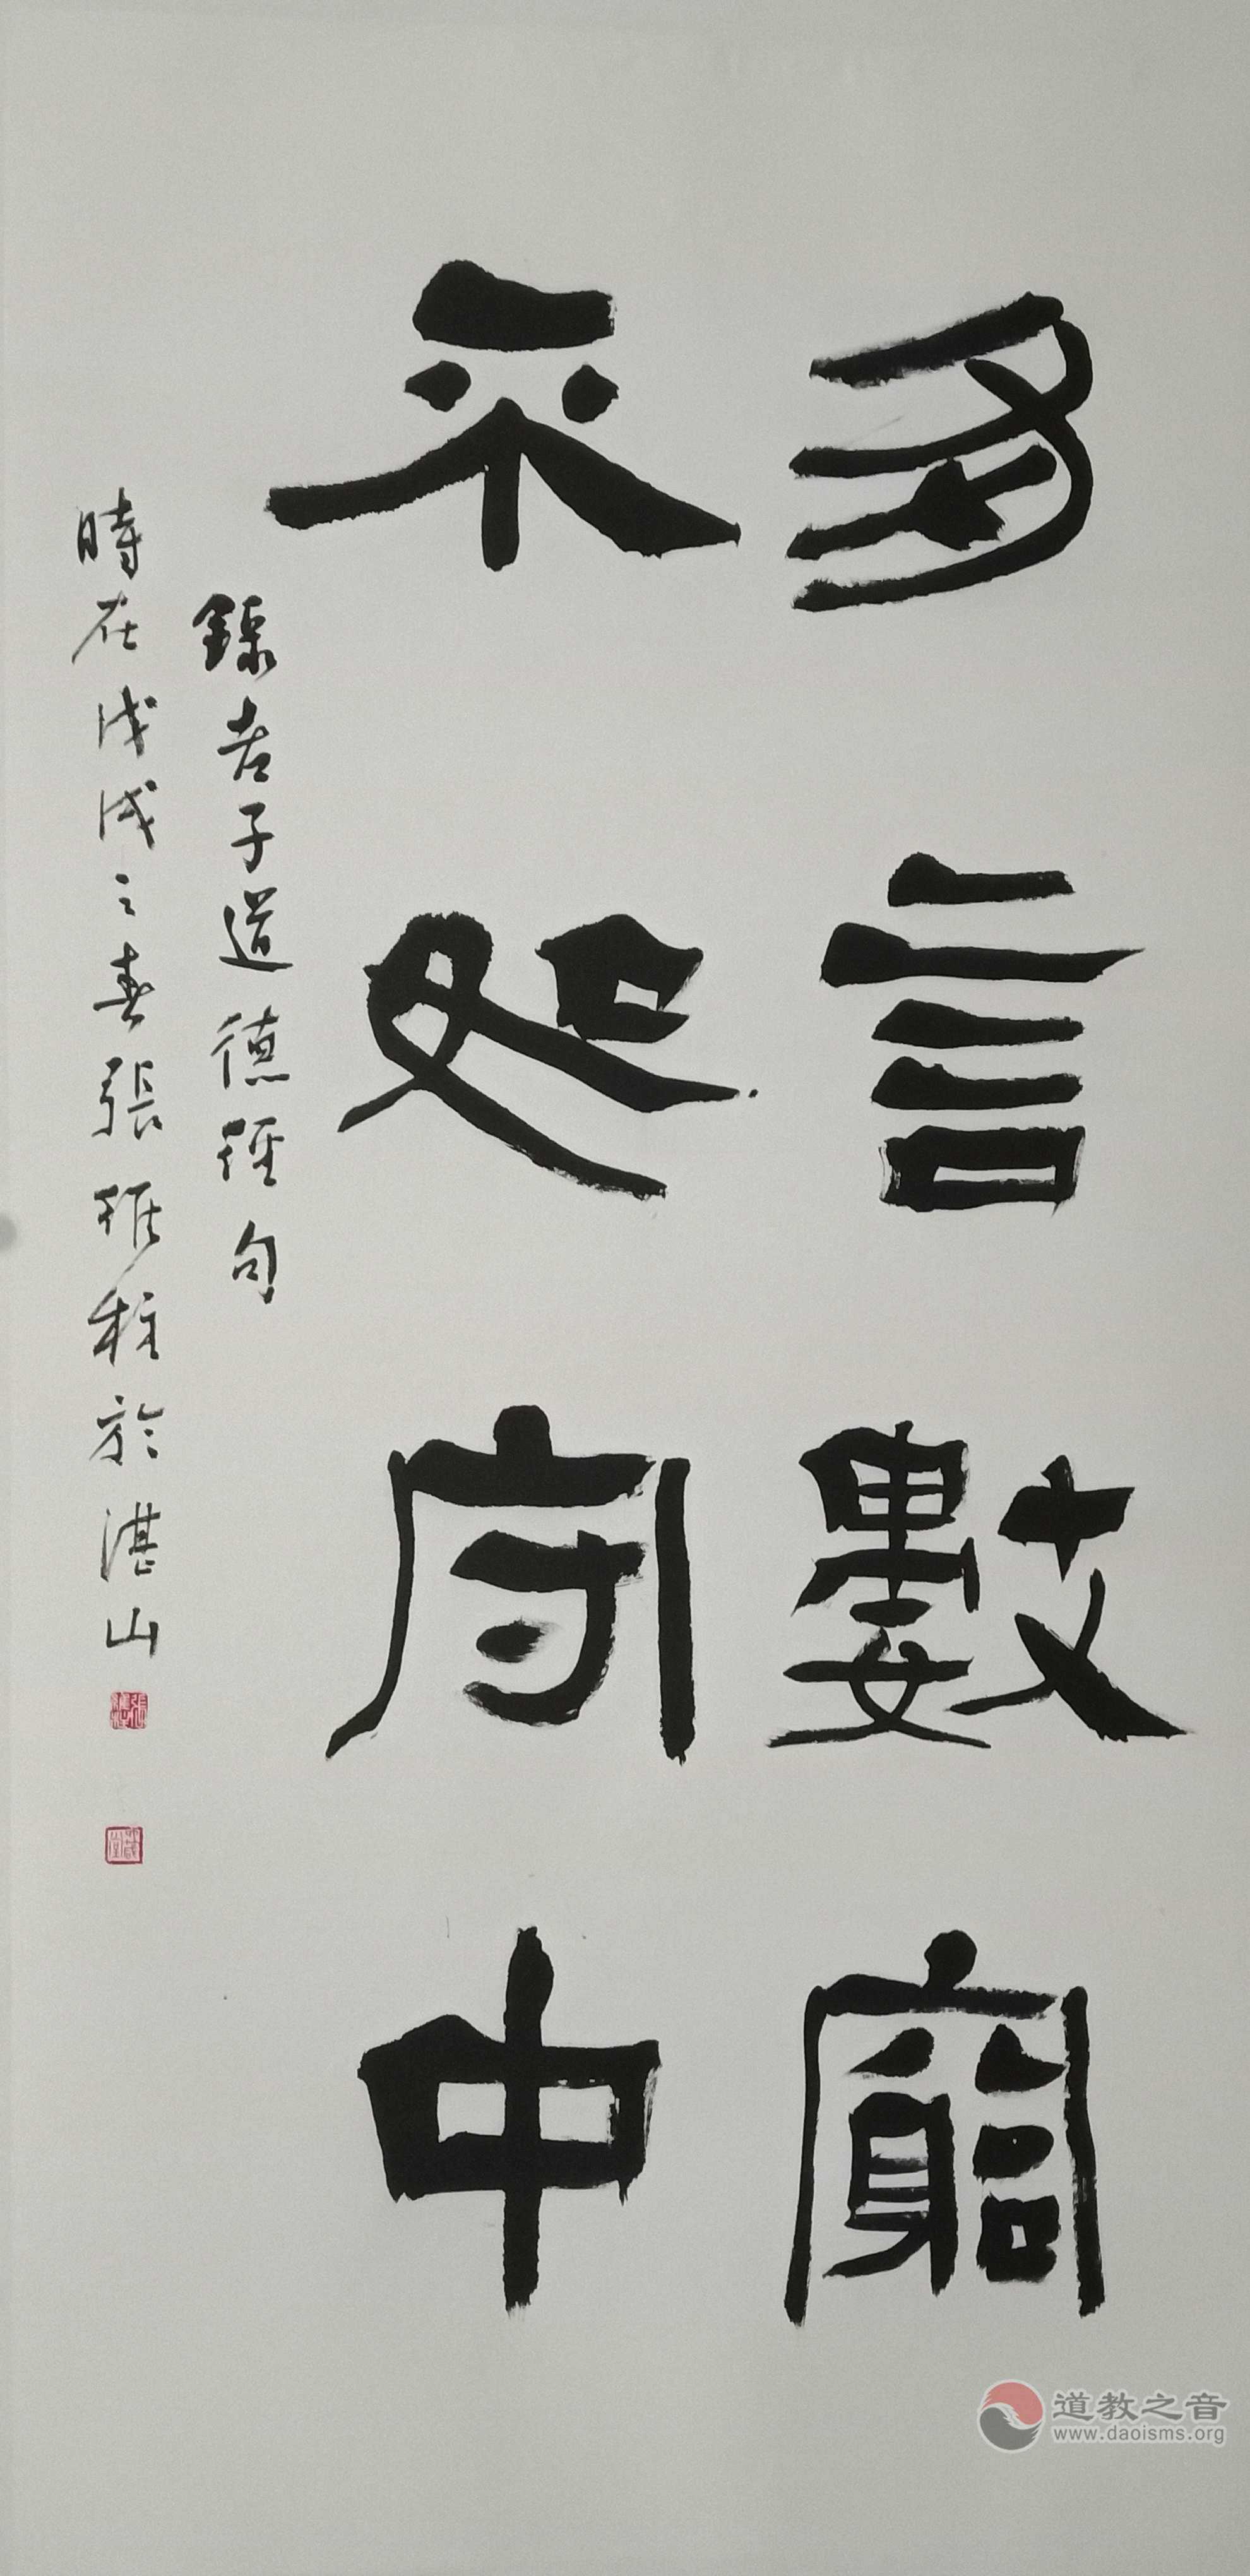 多言數窮
不如守中
錄老子道德經句
時在戊戌之春張維柱於湛山
道教之音
www.daoisms.org